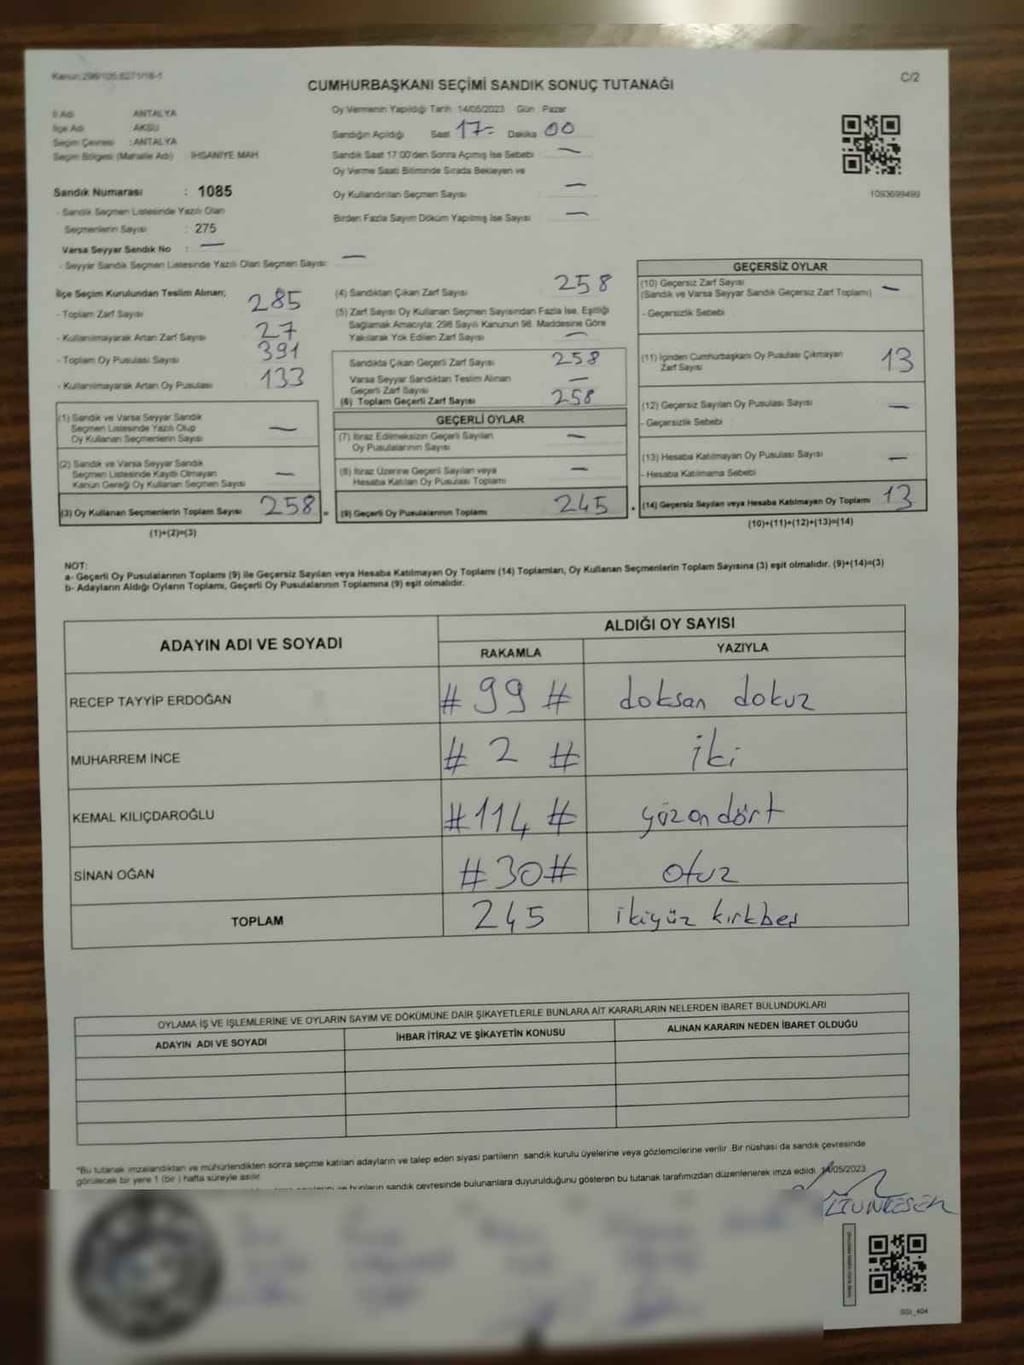 Kanun:298/105,6271/16-1
C/2
CUMHURBAŞKANI SEÇİMİ SANDIK SONUÇ TUTANAĞI
İl Adı ANTALYA
İlçe Adı : AKSU
Seçim Çevresi : ANTALYA
Seçim Bölgesi (Mahalle Adı) İHSANİYE MAH
Sandık Numarası : 1085
- Sandık Seçmen Listesinde Yazılı Olan
Seçmenlerin Sayısı : 275
Varsa Seyyar Sandık No : —
- Seyyar Sandık Seçmen Listesinde Yazılı Olan Seçmen Sayısı —
Oy Vermenin Yapıldığı Tarih 14/05/2023 Gün Pazar
Sandığın Açıldığı Saat 17= Dakika 00
Sandık Saat 17:00'den Sonra Açılmış İse Sebebi —
Oy Verme Saati Bitiminde Sırada Bekleyen ve
Oy Kullandırılan Seçmen Sayısı —
Birden Fazla Sayım Döküm Yapılmış İse Sayısı —
1093699499
İlçe Seçim Kurulundan Teslim Alınan;
- Toplam Zarf Sayısı 285
- Kullanılmayarak Artan Zarf Sayısı 27
- Toplam Oy Pusulası Sayısı 391
- Kullanılmayarak Artan Oy Pusulası 133
(1) Sandık ve Varsa Seyyar Sandık
Seçmen Listesinde Yazılı Olup
Oy Kullanan Seçmenlerin Sayısı —
(2) Sandık ve Varsa Seyyar Sandık
Seçmen Listesinde Kayıtlı Olmayan
Kanun Gereği Oy Kullanan Seçmen Sayısı —
(3) Oy Kullanan Seçmenlerin Toplam Sayısı 258
(1)+(2)=(3)
(4) Sandıktan Çıkan Zarf Sayısı 258
(5) Zarf Sayısı Oy Kullanan Seçmen Sayısından Fazla İse, Eşitliği
Sağlamak Amacıyla; 298 Sayılı Kanunun 98. Maddesine Göre
Yakılarak Yok Edilen Zarf Sayısı —
Sandıkta Çıkan Geçerli Zarf Sayısı 258
Varsa Seyyar Sandıktan Teslim Alınan
Geçerli Zarf Sayısı —
(6) Toplam Geçerli Zarf Sayısı 258
GEÇERLİ OYLAR
(7) İtiraz Edilmeksizin Geçerli Sayılan
Oy Pusulalarının Sayısı —
(8) İtiraz Üzerine Geçerli Sayılan veya
Hesaba Katılan Oy Pusulası Toplamı —
(9) Geçerli Oy Pusulalarının Toplamı 245
GEÇERSİZ OYLAR
(10) Geçersiz Zarf Sayısı
(Sandık ve Varsa Seyyar Sandık Geçersiz Zarf Toplamı) —
- Geçersizlik Sebebi
(11) İçinden Cumhurbaşkanı Oy Pusulası Çıkmayan
Zarf Sayısı 13
(12) Geçersiz Sayılan Oy Pusulası Sayısı —
- Geçersizlik Sebebi
(13) Hesaba Katılmayan Oy Pusulası Sayısı —
- Hesaba Katılmama Sebebi
(14) Geçersiz Sayılan veya Hesaba Katılmayan Oy Toplamı 13
(10)+(11)+(12)+(13)=(14)
NOT:
a- Geçerli Oy Pusulalarının Toplamı (9) ile Geçersiz Sayılan veya Hesaba Katılmayan Oy Toplamı (14) Toplamları, Oy Kullanan Seçmenlerin Toplam Sayısına (3) eşit olmalıdır. (9)+(14)=(3)
b- Adayların Aldığı Oyların Toplamı, Geçerli Oy Pusulalarının Toplamına (9) eşit olmalıdır.
ADAYIN ADI VE SOYADI
ALDIĞI OY SAYISI
RAKAMLA YAZIYLA
RECEP TAYYİP ERDOĞAN # 99 # doksan dokuz
MUHARREM İNCE # 2 # iki
KEMAL KILIÇDAROĞLU #114 # yüzondört
SİNAN OĞAN #30# otuz
TOPLAM 245 ikiyüz kırkbeş
OYLAMA İŞ VE İŞLEMLERİNE VE OYLARIN SAYIM VE DÖKÜMÜNE DAİR ŞİKAYETLERLE BUNLARA AİT KARARLARIN NELERDEN İBARET BULUNDUKLARI
ADAYIN ADI VE SOYADI İHBAR İTİRAZ VE ŞİKAYETİN KONUSU ALINAN KARARIN NEDEN İBARET OLDUĞU
*Bu tutanak imzalandıktan ve mühürlendikten sonra seçime katılan adayların ve talep eden siyasi partilerin sandık kurulu üyelerine veya gözlemcilerine verilir. Bir nüshası da sandık çevresinde
görülecek bir yere 1 (bir ) hafta süreyle asılır.
ve bunların sandık çevresinde bulunanlara duyurulduğunu gösteren bu tutanak tarafımızdan düzenlenerek imza edildi. 14/05/2023